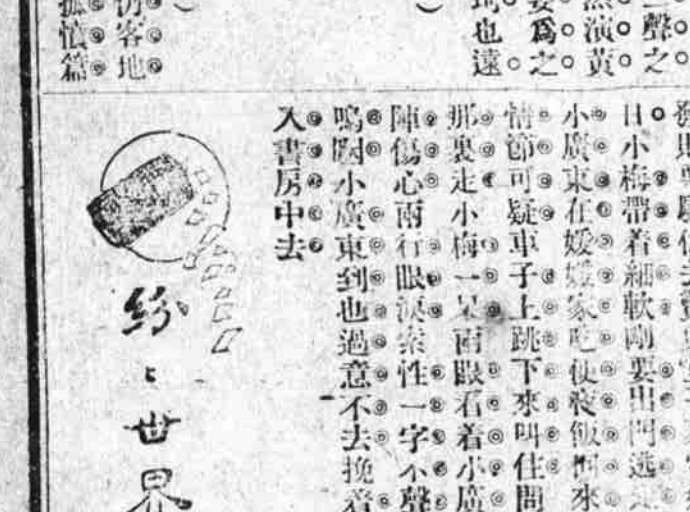 聲之
演黃
爲之
也遠
客地
孤憤篇
日小梅帶着細軟剛要出門
小廣東在媛媛家吃便夜飯回來
情節可疑車子上跳下來叫住問
那裏走小梅一呆兩眼看着小廣
陣傷心兩行眼淚索性一字不聲
嗚咽小廣東到也過意不去挽着
入書房中去
紛々世界